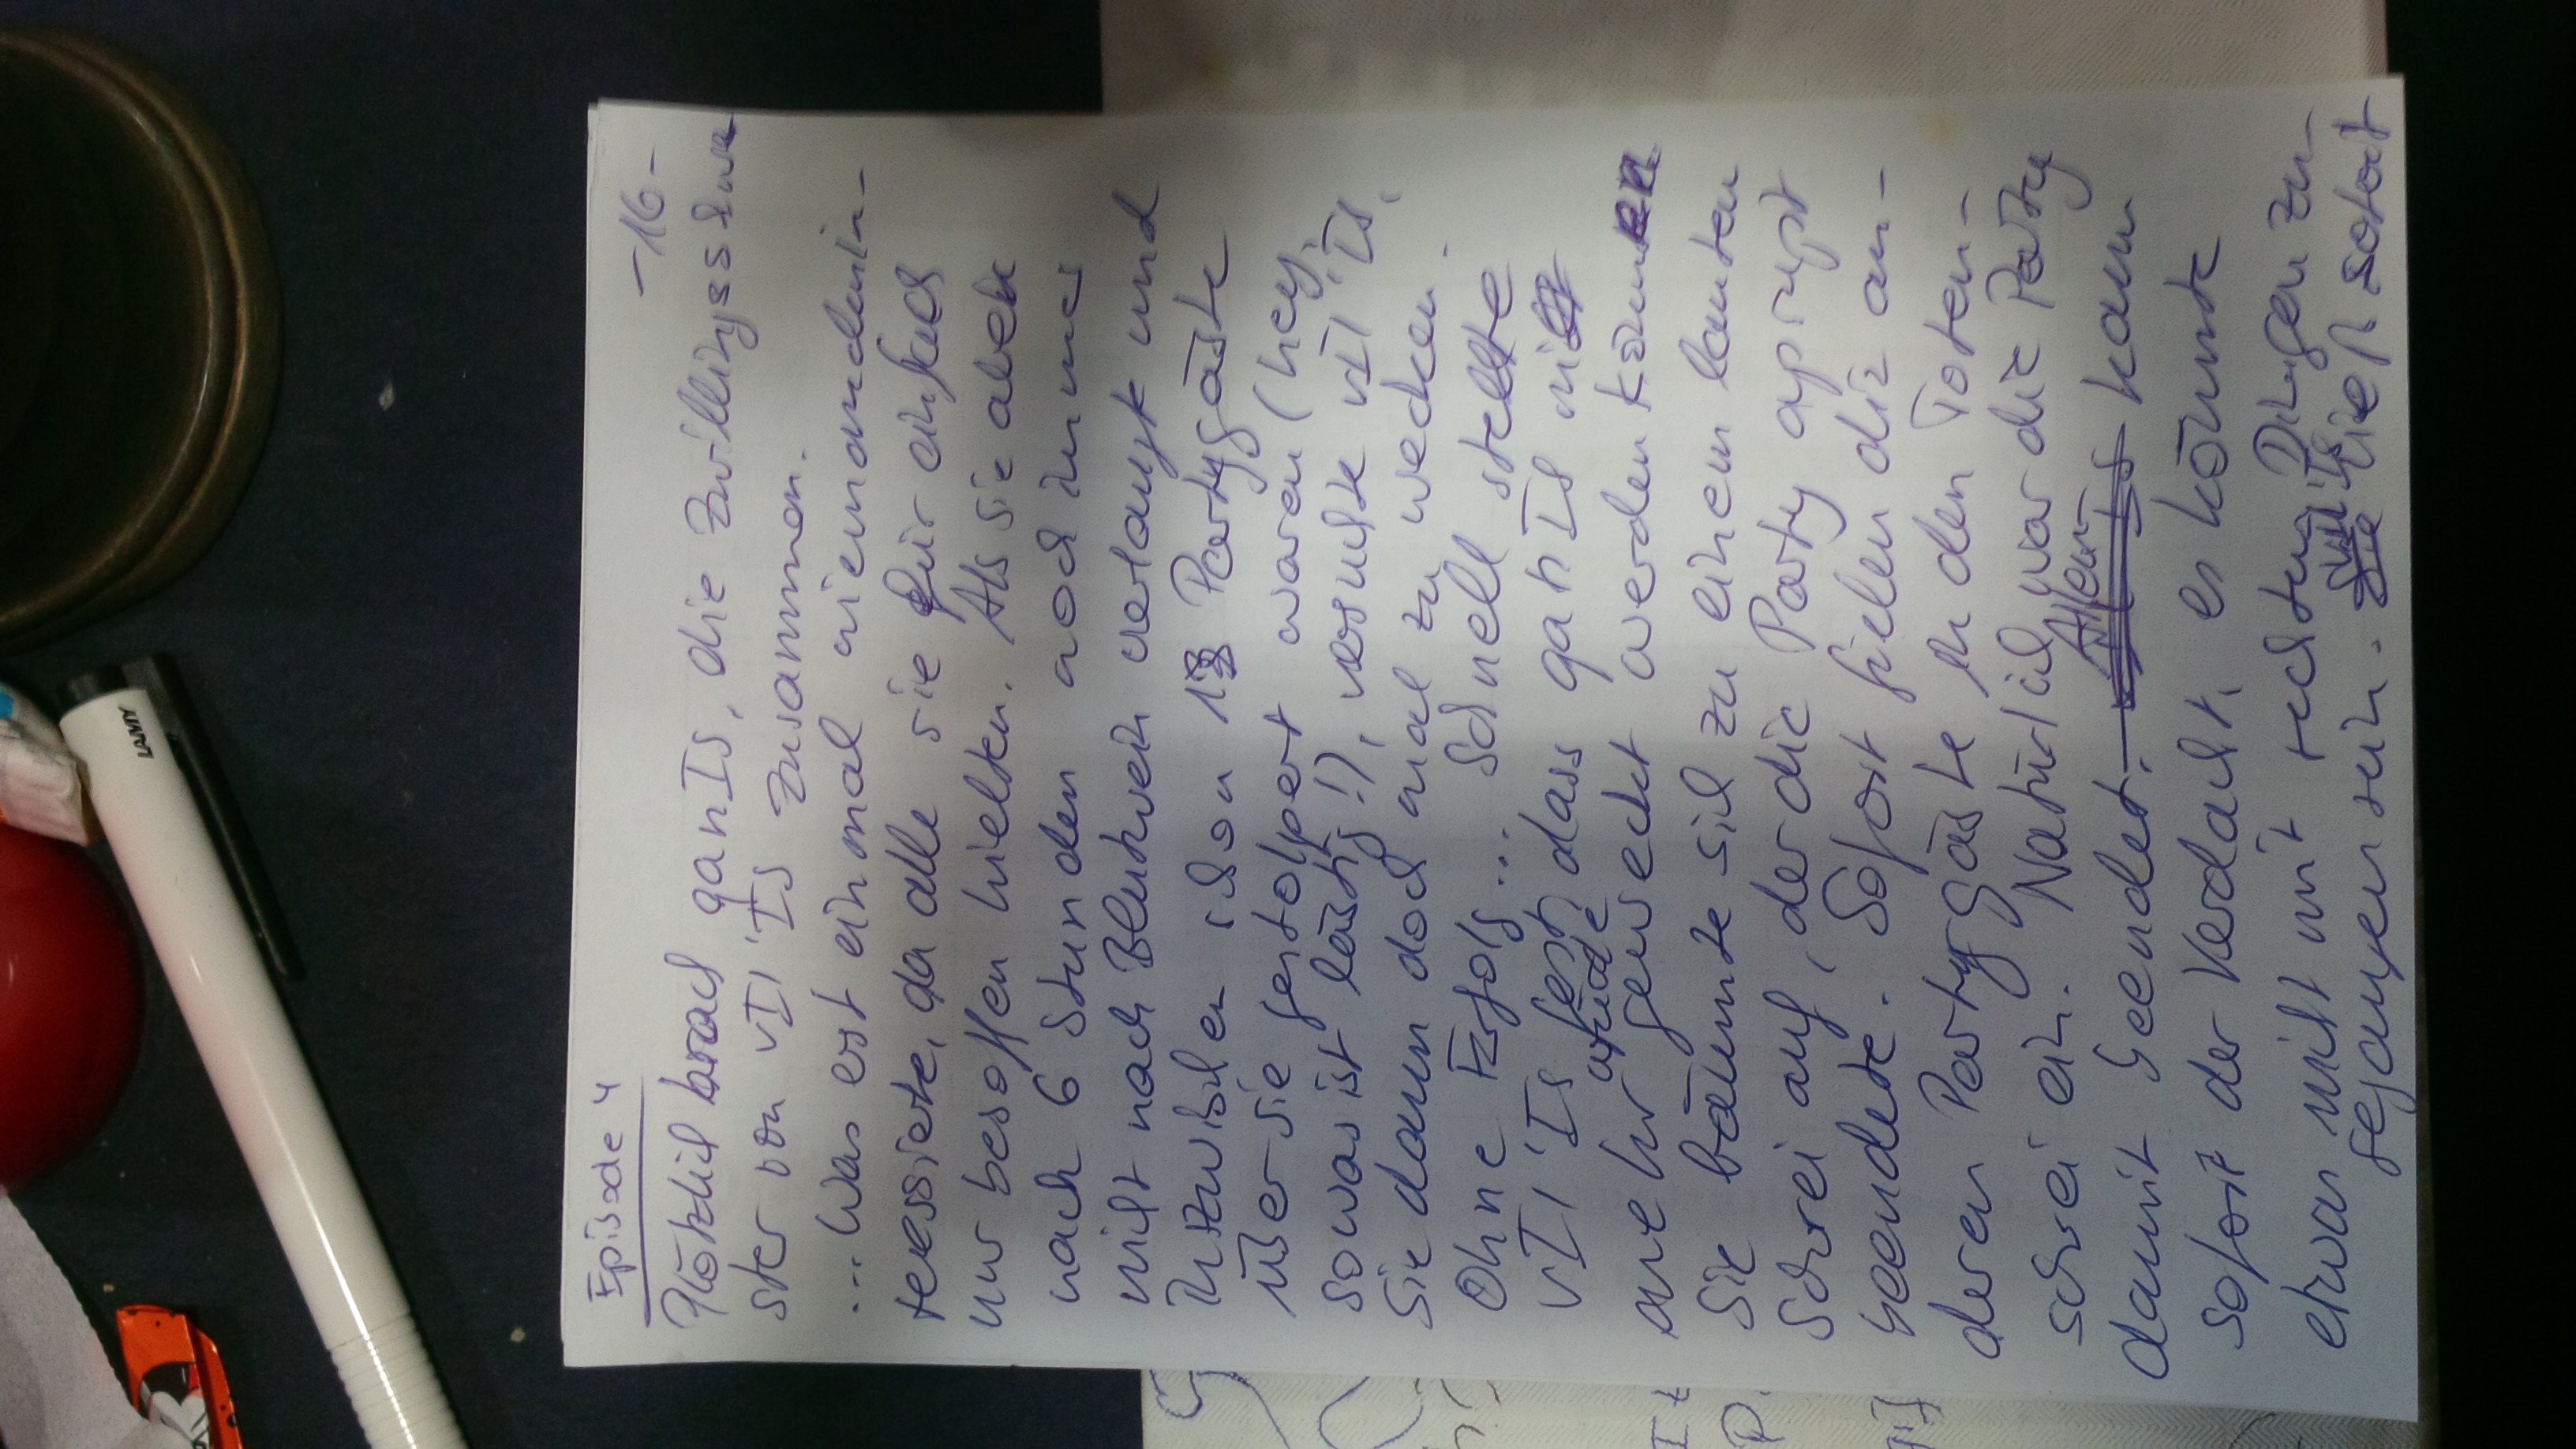 Episode 4
-16-
Plötzlich brach ganIs, die Zwillingsschwe
ster von vII'Is zusammen.
... Was erst einmal niemanden in-
teressierte, da alle sie für einfach
nur besoffen hielten. Als sie aber
nach 6 Stunden noch immer
nicht nach Blutwein verlangt und
Inzwischen schon 13 Partygäste
über sie gestolpert waren (hey,
sowas ist lästig!), versuchte vII'Is,
sie dann doch mal zu wecken.
Ohne Erfolg... Schnell stellte
vII'Is fest, dass ganIs nicht
mehr würde geweckt werden können
Sie bäumte sich zu einem lauten
Schrei auf, der die Party aprupt
beendete. Sofort fielen die an-
deren Partygäste in den Toten-
schrei ein. Natürlich war die Party
damit beendet. Allen kam
sofort der Verdacht, es könnte
etwas nicht mit rechten Dingen zu-
gegangen sein. vII'Is ließ sofort
LAMY